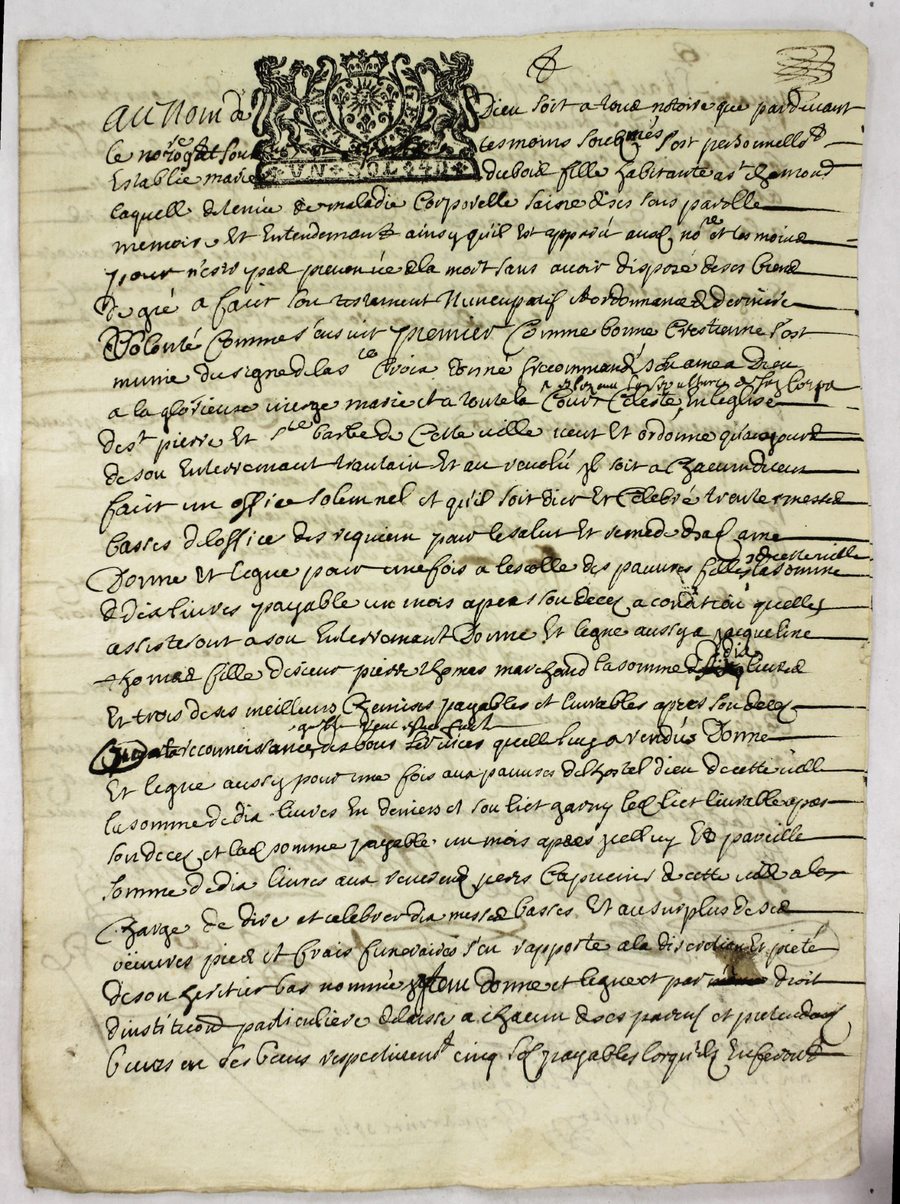 Au Nom de Dieu soit a tous notoire que pardevant
le no.re royal sou tesmoins soubznés s'est personnellemt
Establie marie duboid fille habitante a st chamond
laquell detenue de maladie Corporelle saine de ses sens parolle
memoire Et Entendemant ainsy qu'il Est apparu ausd no.re et tesmoins
pour n'estre pas prevenue de la mort sans avoir disposé de ses biens
De gré a faict son testament Nuncupatif & ordonnance de derniere
Volonté Comme s'ensuit premier Comme bonne Crestienne s'est
munie du signe de la s.te Croix donné & recommandé son ame a Dieu
a la glorieuse vierge marie et a toute la Cour Celeste En l'eglise
de st pierre Et s.te barbe de Cette ville veut Et ordonne qu'au jour
de son Enterremant trantain Et au revolu Il soit a chacun d'iceux
faict un office solemnel et qu'il soit dict Et Celebré trente messes
basses de l'office des requiem pour le salut Et remede de sad ame
Donne Et legue pour une fois a l'escolle des pauvres filles de cette ville la somme
de dix livres payable un mois apres son decez a condition qu'elles
assisteront a son Enterremant Donne Et legue aussy a jacqueline
thomas fille de sieur pierre thomas marchand la somme de dix livres
Et trois de ses meilleurs Chemises payables et livrables apres son decez
En reconnoissance des bons services quelle luy a rendus Donne
Et legue aussy pour une fois aux pauvres de l'hostel dieu de cette ville
la somme de dix livres En deniers et son lict garny led lict livrable apres
son decez et lad somme payable un mois apres icelluy Et pareille
somme de dix livres aux reverend peres Capucins de cette ville a la
Charge de dire et celebrer dix messes basses Et au surplus de ses
oeuvres pies et frais funeraires s'en rapporte a la discretion Et pieté
de son heritier bas nommé Item donne et legue et par droit
d'institution particuliere delaisse a chacun de ses parens et pretendans
droict en ses biens respectivemt cinq solz payables lorsqu'ilz En feront
VN·SOL·4D